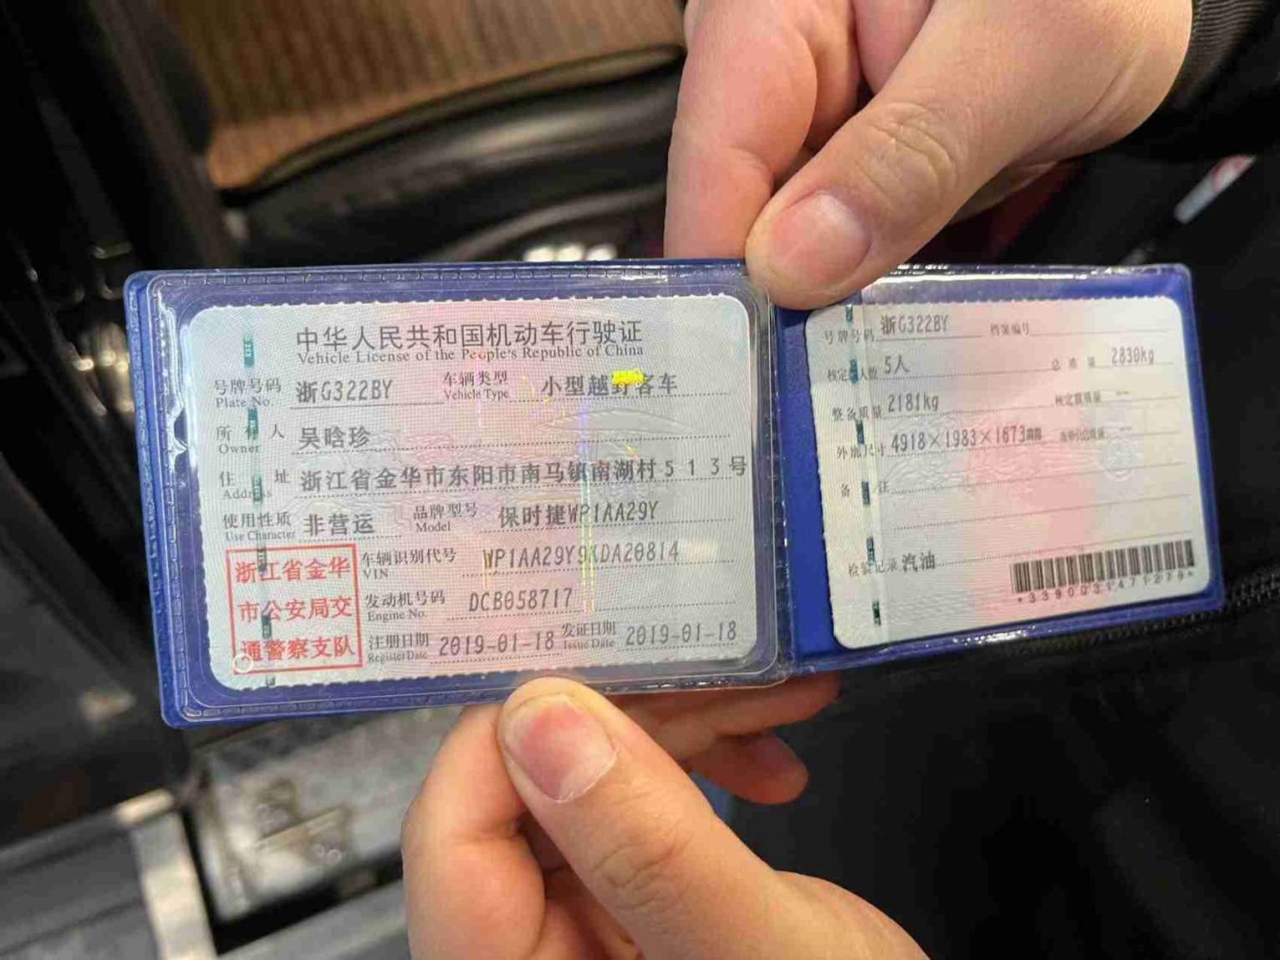 中华人民共和国机动车行驶证
Vehicle License of the People's Republic of China
号牌号码 Plate No. 浙G322BY 车辆类型 Vehicle Type 小型越野客车
所有人 Owner 吴晗珍
住址 Address 浙江省金华市东阳市南马镇南湖村513号
使用性质 Use Character 非营运 品牌型号 Model 保时捷WP1AA29Y
浙江省金华
市公安局交
通警察支队
车辆识别代号 VIN WP1AA29Y9KDA20814
发动机号码 Engine No. DCB058717
注册日期 Register Date 2019-01-18 发证日期 Issue Date 2019-01-18
号牌号码 浙G322BY 档案编号
核定人数 5人 总质量 2830kg
整备质量 2181kg 核定载质量 --
外廓尺寸 4918×1983×1673mm
备注
检验记录 汽油
*3390031471279*